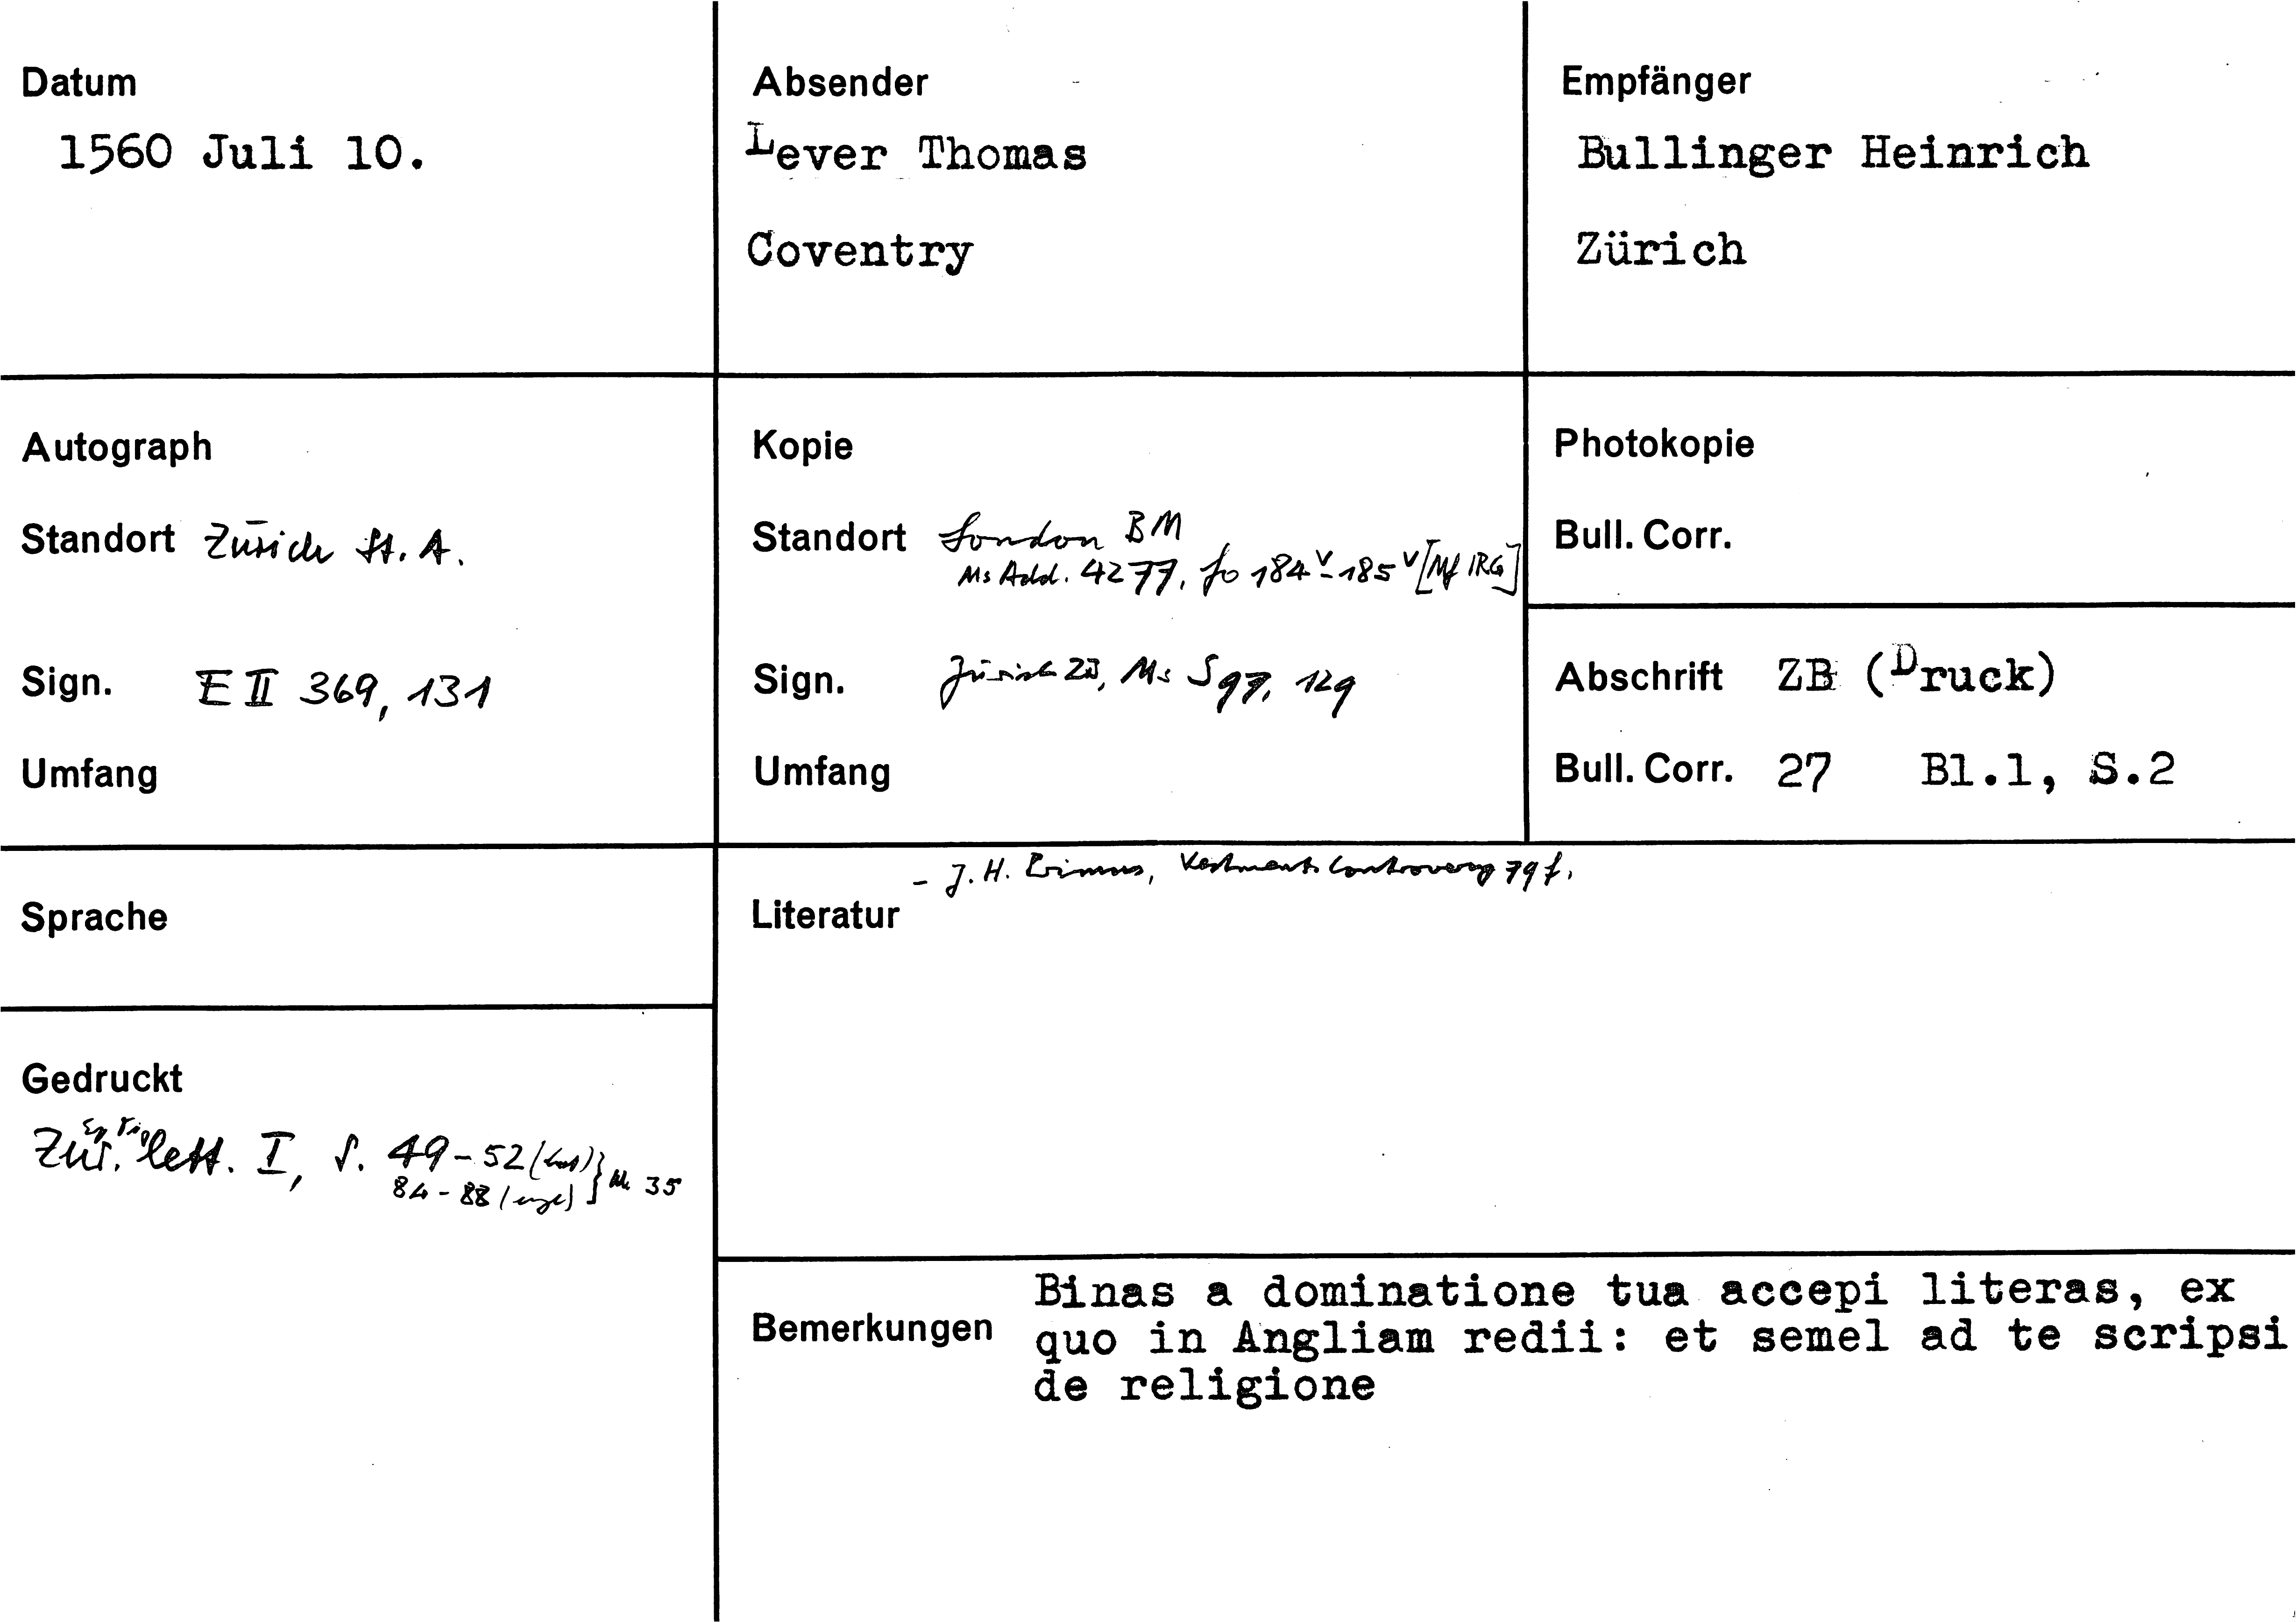 Datum
1560 Juli 10.
Absender
Lever Thomas
Coventry
Empfänger
Bullinger Heinrich
Zürich
Autograph
Standort Zürich St. A.
Sign. E II 369, 131
Umfang
Kopie
Standort London BM
Ms Add. 4277, fo 184v-185v [Mf IRG]
Sign. Zürich ZB, Ms S 97, 129
Umfang
Photokopie
Bull. Corr.
Abschrift ZB (Druck)
Bull. Corr. 27 Bl.1, S.2
Sprache
Literatur
- J. H. Primus, Vestments Controversy 79 f.
Gedruckt
Zür. lett. I, S. 49-52 (lat)
84-88 (engl) } Nr 35
Bemerkungen
Binas a dominatione tua accepi literas, ex
quo in Angliam redii: et semel ad te scripsi
de religione